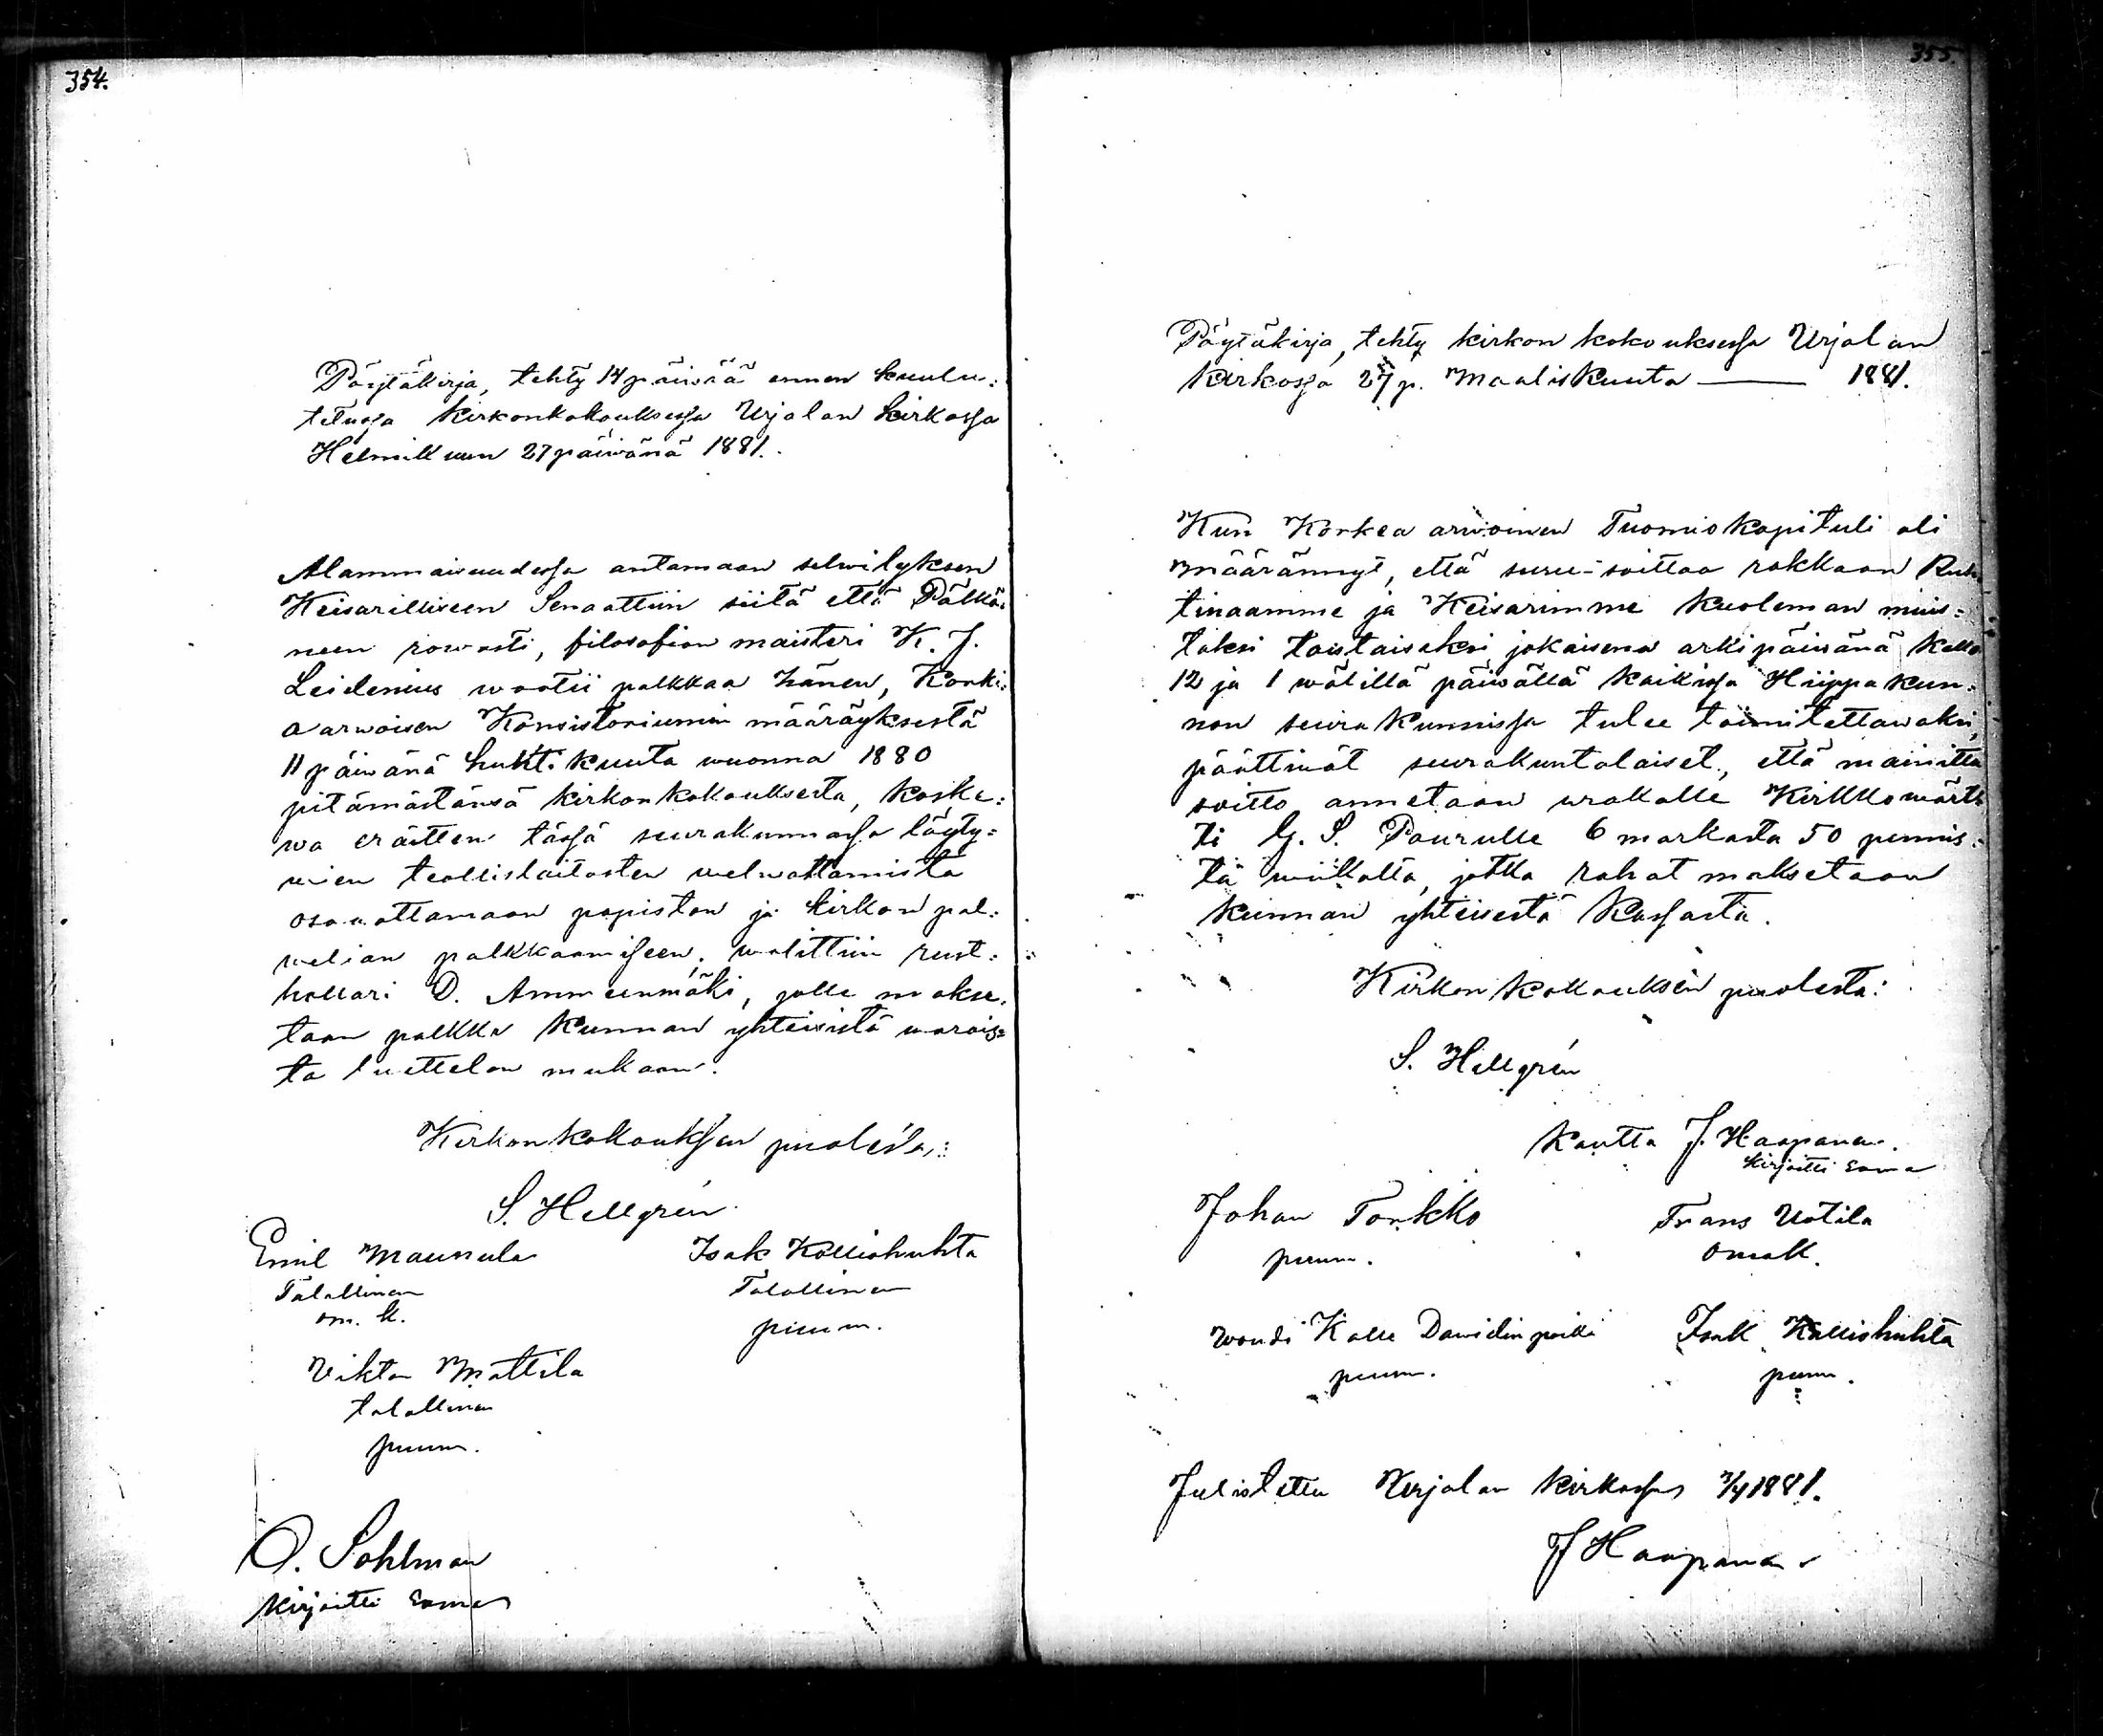 354.
Pöytäkirja, tehty 14 päiwää ennen kuulu:
tetussa kirkonkokouksessa Urjalan kirkossa
Helmikuun 27 päiwänä 1881.
Alammaisuudessa antamaan selwityksen
Keisarilliseen Senaattiin siitä että Pälkä:
neen rowasti, filosofian maisteri K. J.
Leidenius waatii palkkaa hänen, Korki:
a arwoisen Konsistoriumin määräyksestä
11 päiwänä huhtikuuta wuonna 1880
pitämästänsä kirkonkokouksesta, koske:
wa eräitten tässä seurakunnassa löyty=
wien teollislaitosten welwottamista
osaaottamaan papiston ja kirkon pal:
welian palkkaamiseen, walittiin rust:
hollari D. Ammeenmäki, jolle makse:
taan palkka kunnan yhteisistä warois=
ta luettelon mukaan.
Kirkonkokouksen puolesta:
S. Hellgrén
Emil Maunula Isak Kalliohuhta
Talollinen Talollinen
om. k. puum.
Viktor Mattila
talollinen
puum.
O. Sohlman
Kirjoitti Eama
355.
Pöytäkirja, tehty kirkon kokouksessa Urjalan
kirkossa 27 p. Maaliskuuta — 1881.
Kun Korkea arwoinen Tuomiokapituli oli
määrännyt, että suru-soittoa rakkaan Ruh
tinaamme ja Keisarimme kuoleman muis=
toksi toistaiseksi jokaisena arkipäiwänä kello
12 ja 1 wälillä päiwällä kaikissa Hiippakun:
nan seurakunnissa tulee toimitettawaksi,
päättiwät seurakuntalaiset, että mainittu
soitto annetaan urakalle Kirkkowärt
ti G. S. Paurulle 6 markasta 50 pennis:
tä wiikolta, jotka rahat maksetaan
kunnan yhteisestä kassasta.
Kirkon kokouksen puolesta:
S. Hellgrén
kautta J. Haapanen.
kirjoitti Eama
Johan Torkko Frans Uotila
puum. omak.
woudi Kalle Dawidin poika Isak Kalliohuhta
puum. puum.
Julistettu Urjalan kirkossa 3/4 1881.
J Haapanen